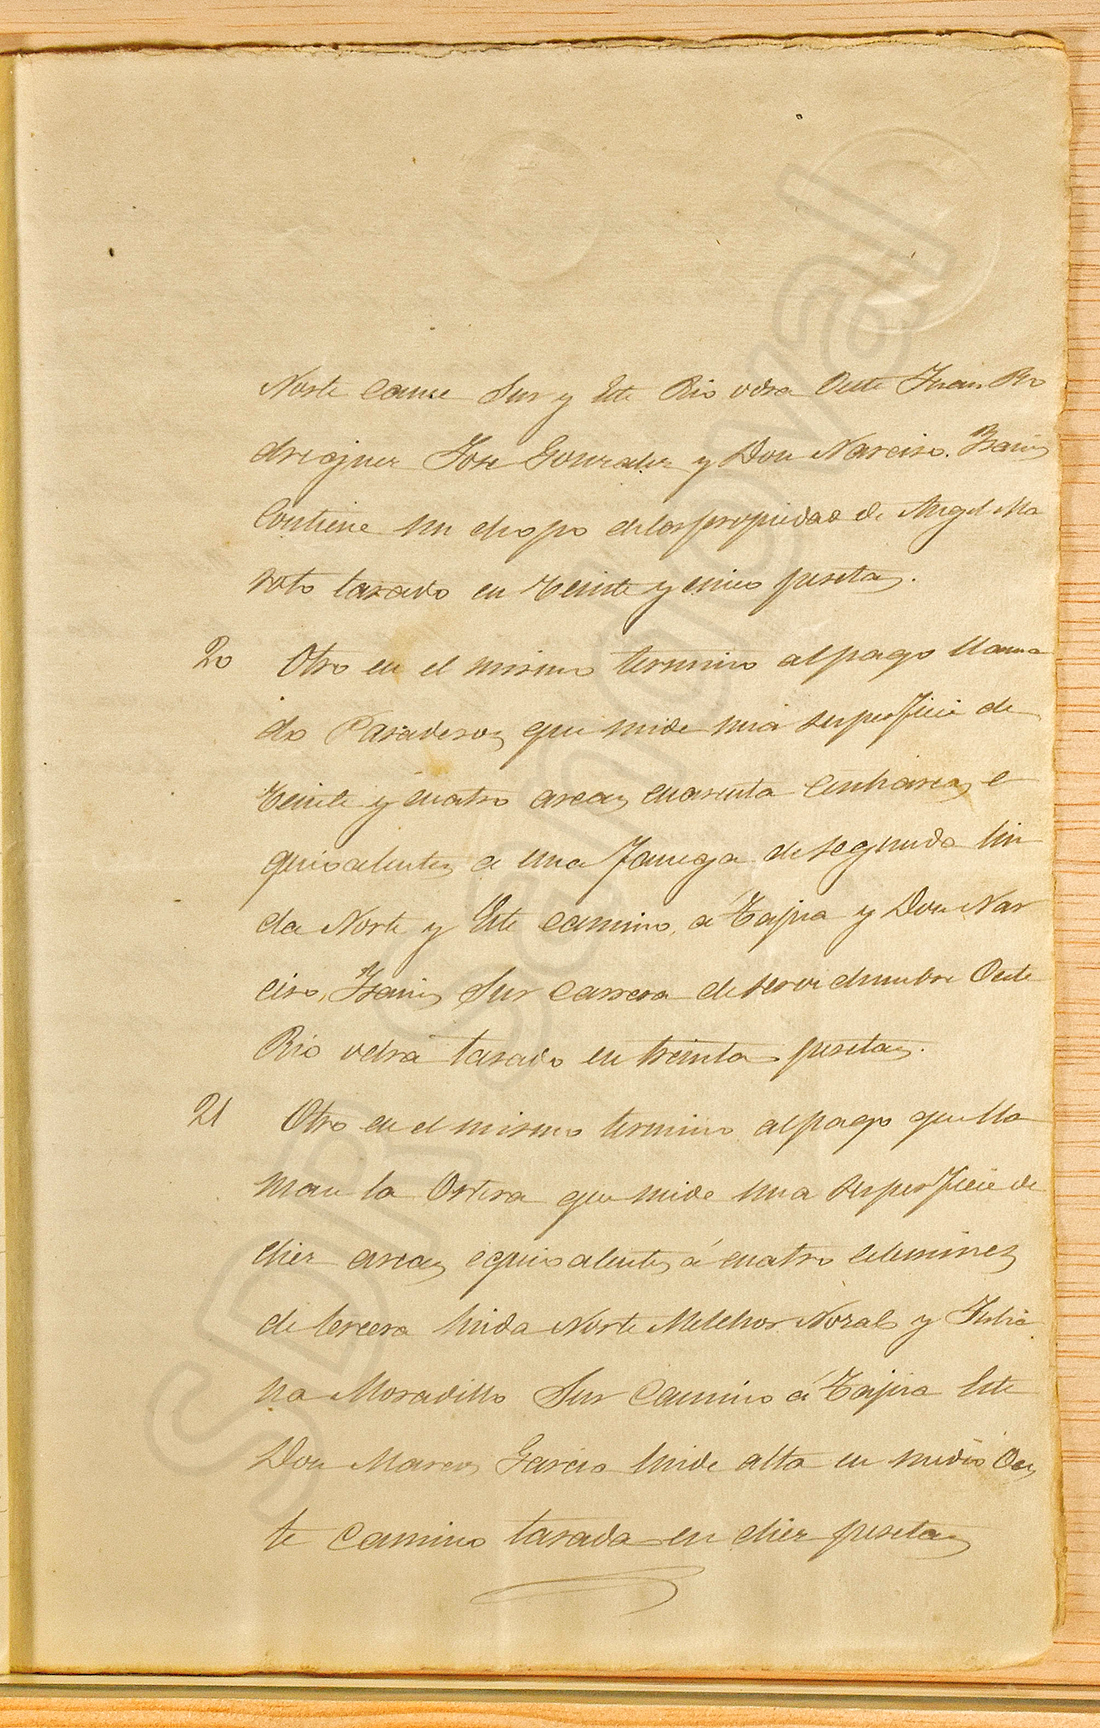 Norte Cauce Sur y Este Rio odra Oeste Juan Ro
driguez Jose Gonzalez y Don Narciso
Contiene un chopo de la propiedad de Angel Ma
roto tasado en Veinte y cinco pesetas.
20 Otro en el mismo termino al pago llama
do Paraderos que mide una superficie de
Veinte y cuatro areas cuarenta Centiareas e
quivalentes a una fanega de segunda lin
da Norte y Este Camino á Tapia y Don Nar
ciso Sur Carrera de servidumbre Oeste
Rio odra tasado en treinta pesetas.
21 Otro en el mismo termino al pago que lla
man la que mide una superficie de
diez areas equivalentes á cuatro celemines
de tercera linda Norte Melchor Nozal y Julia
na Moradillo Sur Camino á Tapia Este
Don Marcos Garcia linde alta en medio Oes
te Camino tasada en diez pesetas
SDR Sandoval